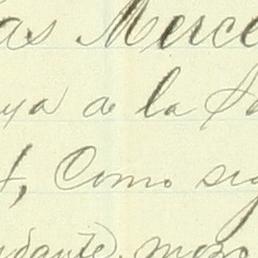 as Merce
ya de la Sa
t, Como sig
ndante, mozo